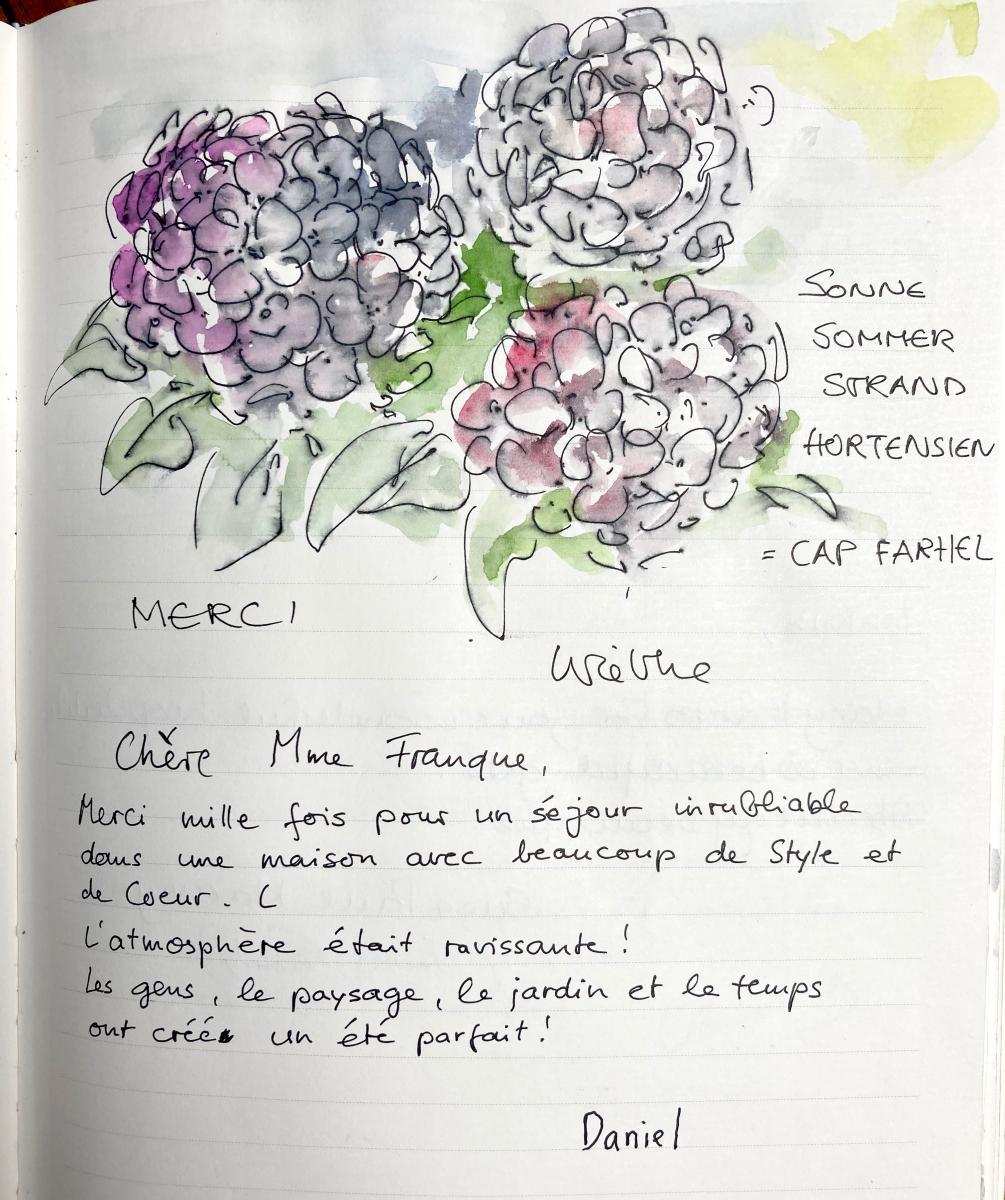 SONNE
SOMMER
STRAND
HORTENSIEN
= CAP FARHEL
MERCI
Chère Mme Franque,
Merci mille fois pour un séjour inrubliable
dans une maison avec beaucoup de Style et
de Coeur. L
L'atmosphère était ravissante !
Les gens, le paysage, le jardin et le temps
ont créé un été parfait !
Daniel